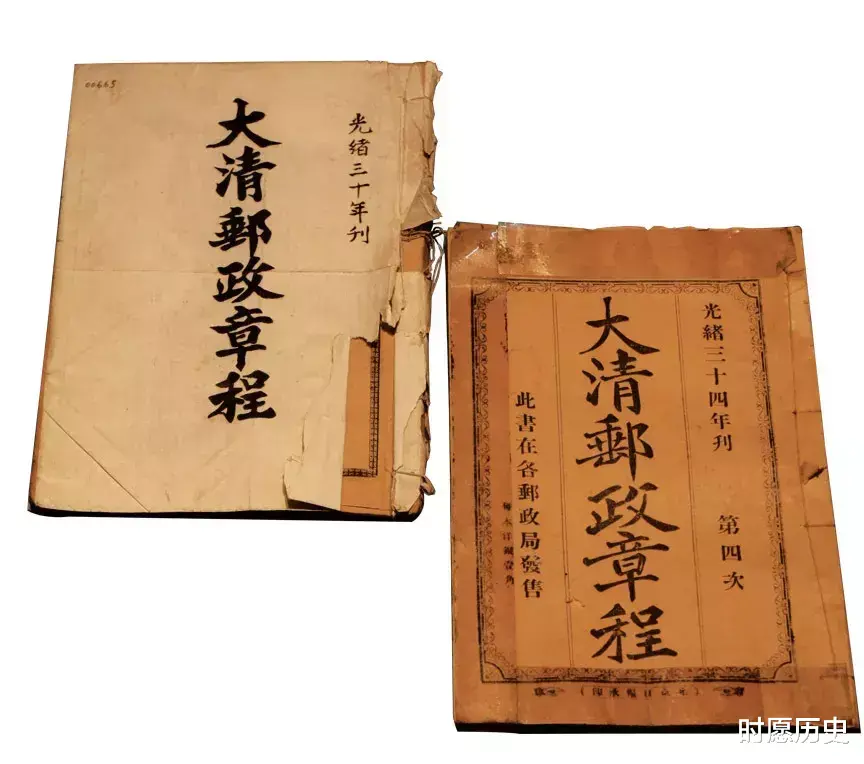 00665
光緒三十年刊
大清郵政章程
光緒三十四年刊 第四次
大清郵政章程
此書在各郵政局發售
每本洋銀壹角
时愿历史